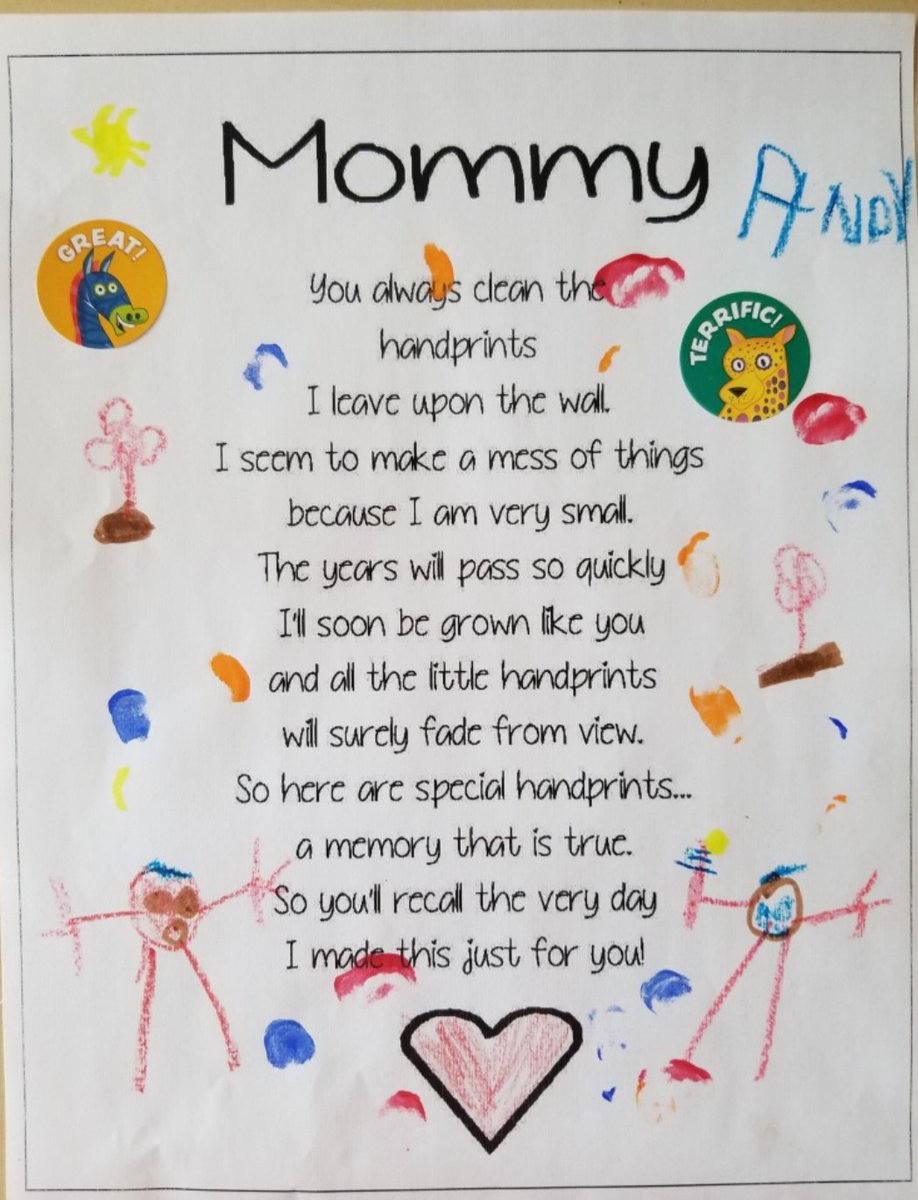 Mommy
ANDY
GREAT!
You always clean the
TERRIFIC!
handprints
I leave upon the wall.
I seem to make a mess of things
because I am very small.
The years will pass so quickly
I'll soon be grown like you
and all the little handprints
will surely fade from view.
So here are special handprints...
a memory that is true.
So you'll recall the very day
I made this just for you!